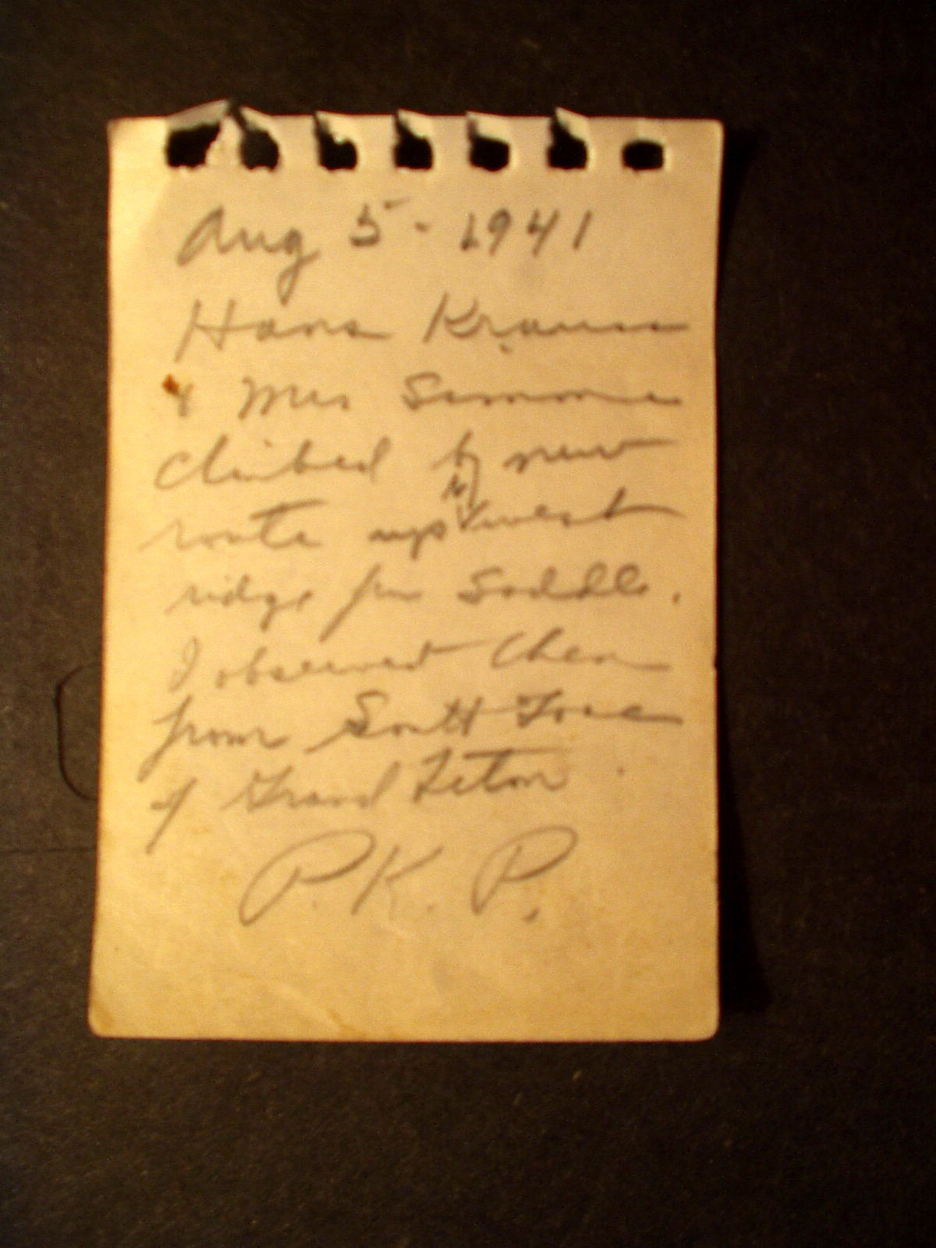 Aug 5 - 1941
Hans Kraus
& Mrs Simmons
climbed by new
route up N west
ridge from Saddle.
I observed them
from South Face
of Grand Teton.
P. K. P.